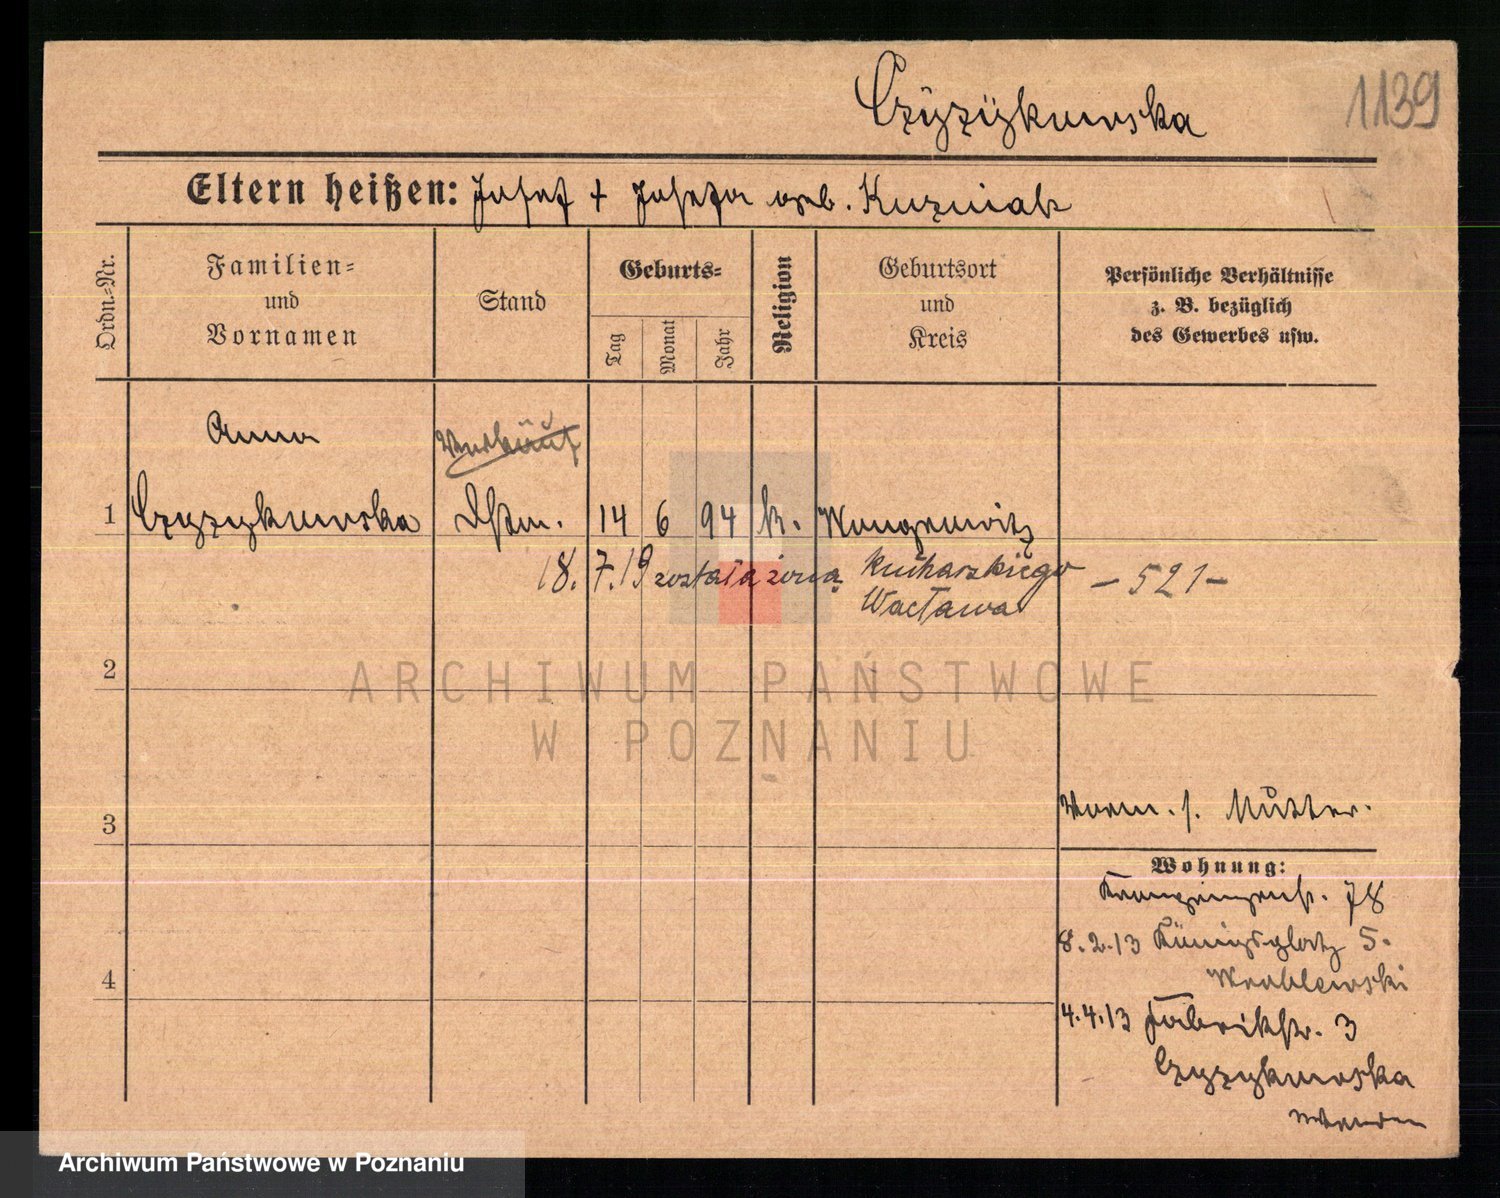 Czyzykowska
1139
Eltern heißen: Josef + Josefa geb. Kuzniak
Ordn.=Nr.
Familien=
und
Vornamen
Stand
Geburts=
Tag
Monat
Jahr
Religion
Geburtsort
und
Kreis
Persönliche Verhältnisse
z. B. bezüglich
des Gewerbes usw.
Anna
1 Czyzykowska Dstm. 14 6 94 k. Wongrowitz
18. 7. 19 została żoną Kucharskiego - 521 -
Wacława
2
ARCHIWUM PAŃSTWOWE
W POZNANIU
3
Vorm. s. Mutter.
Wohnung:
78
8.2.13 Königsplatz 5.
Wroblewski
4
4.4.13 Fabrikstr. 3
Czyzykowska
Archiwum Państwowe w Poznaniu